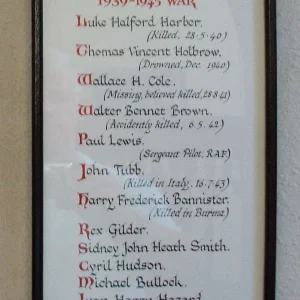 1939-1945 WAR
Luke Halford Harber.
(Killed, 28.5.40)
Thomas Vincent Holbrow.
(Drowned, Dec. 1940)
Wallace H. Cole.
(Missing, believed killed, 28.8.41)
Walter Bennet Brown.
(Accidently killed, 6.5.42)
Paul Lewis.
(Sergeant Pilot, RAF)
John Tubb.
(Killed in Italy, 16.7.43)
Harry Frederick Bannister.
(Killed in Burma)
Rex Gilder.
Sidney John Heath Smith.
Cyril Hudson.
Michael Bullock.
Harry Hazard.